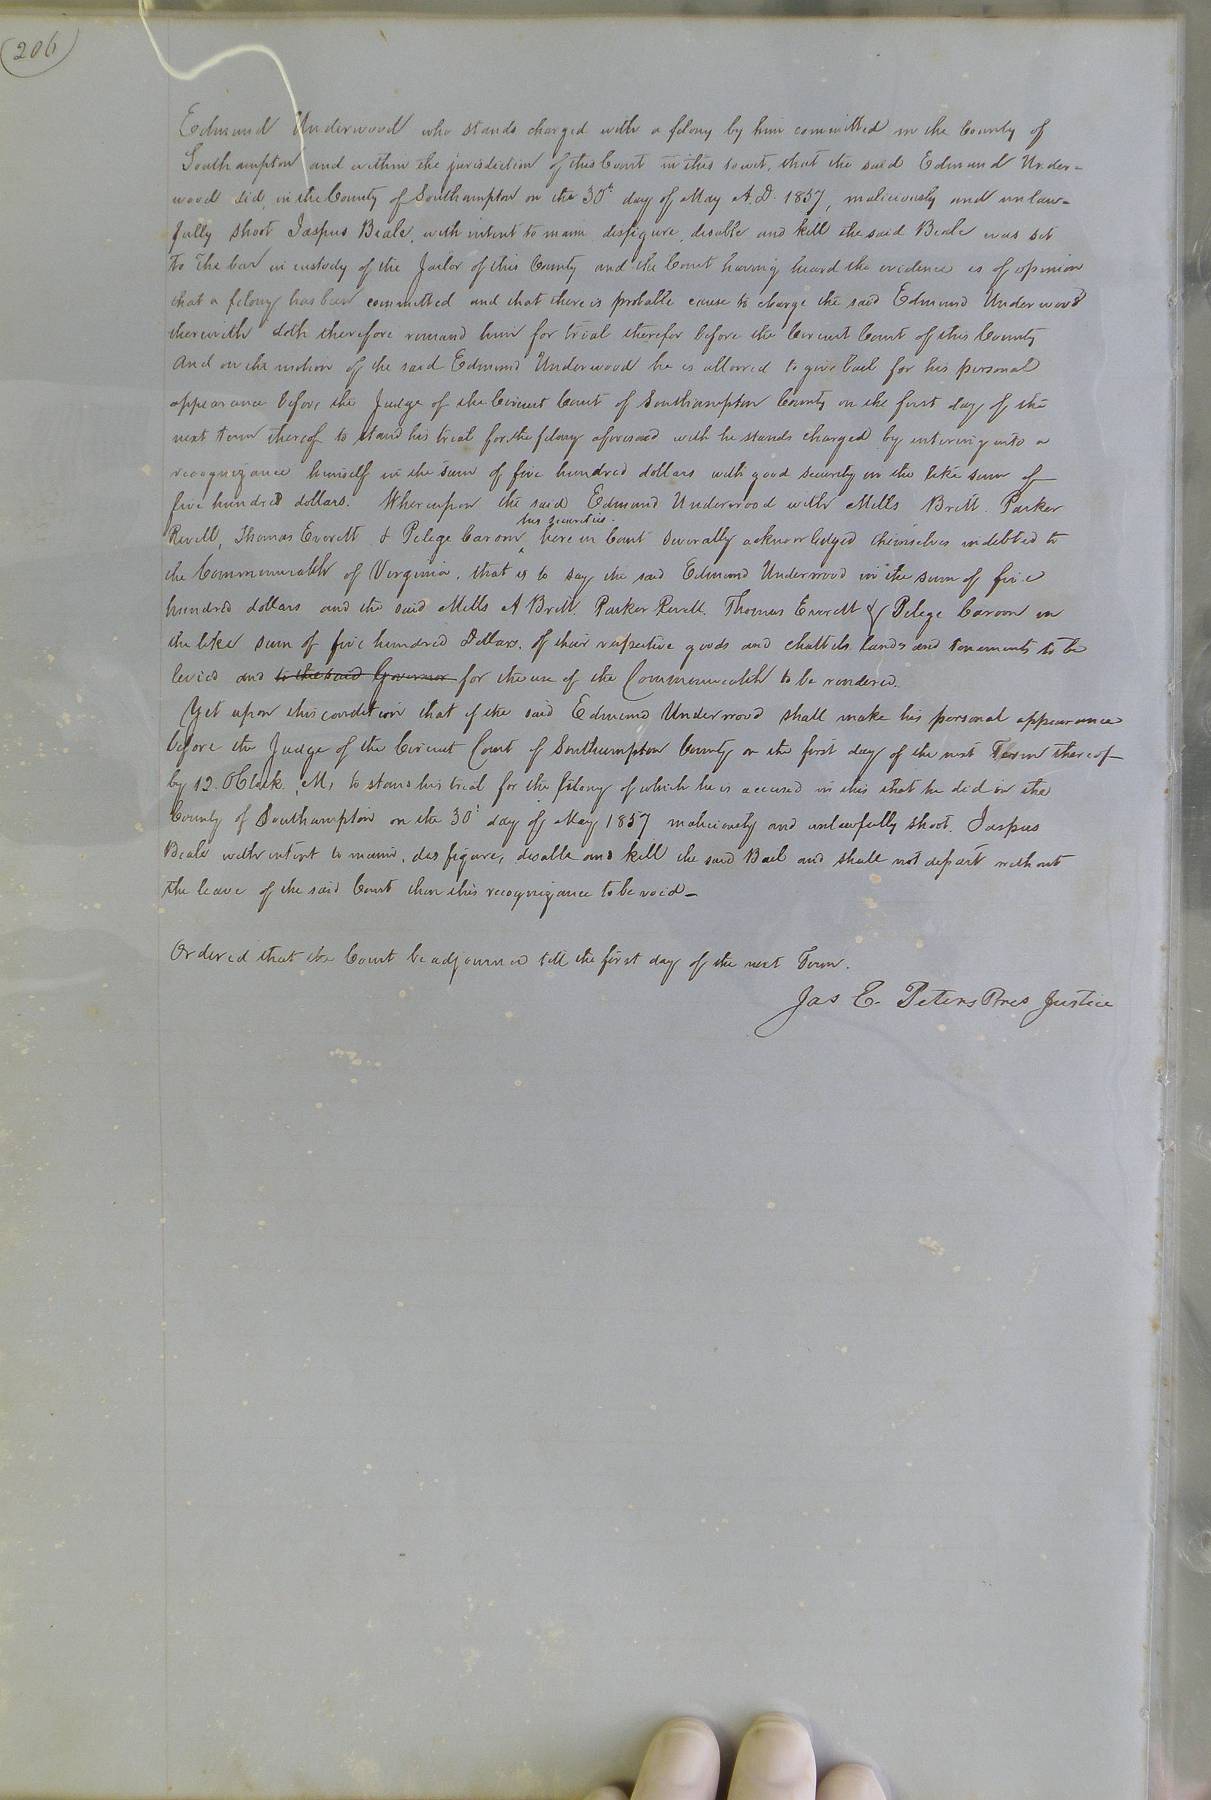 206
Edmund Underwood who stands charged with a felony by him committed in the County of
Southampton and within the jurisdiction of this Court in this towit, that the said Edmund Under-
wood did, in the County of Southampton on the 30th day of May A.D. 1857, maliciously and unlaw-
fully shoot Jaspus Beale, with intent to maim disfigure, disable and kill the said Beale was set
to the bar in custody of the Jailor of this County and the Court having heard the evidence is of opinion
that a felony has been committed and that there is probable cause to charge the said Edmund Underwood
therewith doth therefore remand him for trial therefor before the Circuit Court of this County
And on the motion of the said Edmund Underwood he is allowed to give bail for his personal
appearance before the Judge of the Circuit Court of Southampton County on the first day of the
next term thereof to stand his trial for the felony aforesaid with he stands charged by entering into a
recognizance himself in the sum of five hundred dollars with good security in the like sum of
five hundred dollars. Whereupon the said Edmund Underwood with Mills Britt Parker
his securities
Revell, Thomas Everett & Pelege Caroon, here in Court severally acknowledged themselves indebted to
the Commonwealth of Virginia, that is to say the said Edmund Underwood in the sum of five
hundred dollars and the said Mills A Britt Parker Revell. Thomas Everett & Pelege Caroon in
the like sum of five hundred Dollars, of their respective goods and chattels lands and tenements to be
levied and to the said Governor for the use of the Commonwealth to be rendered.
Yet upon this condition that if the said Edmund Underwood shall make his personal appearance
before the Judge of the Circuit Court of Southampton County on the first day of the next Term thereof
by 12. OClock, M, to stand his trial for the felony of which he is accused in this that he did in the
County of Southampton on the 30t day of May 1857 maliciously and unlawfully shoot. Jaspus
Beale with intent to maim, disfigure, disable and kill the said Bail and shall not depart without
the leave of the said Court then this recognizance to be void-
Ordered that the Court be adjourned till the first day of the next Term.
Jas E. Peters Pres Justice